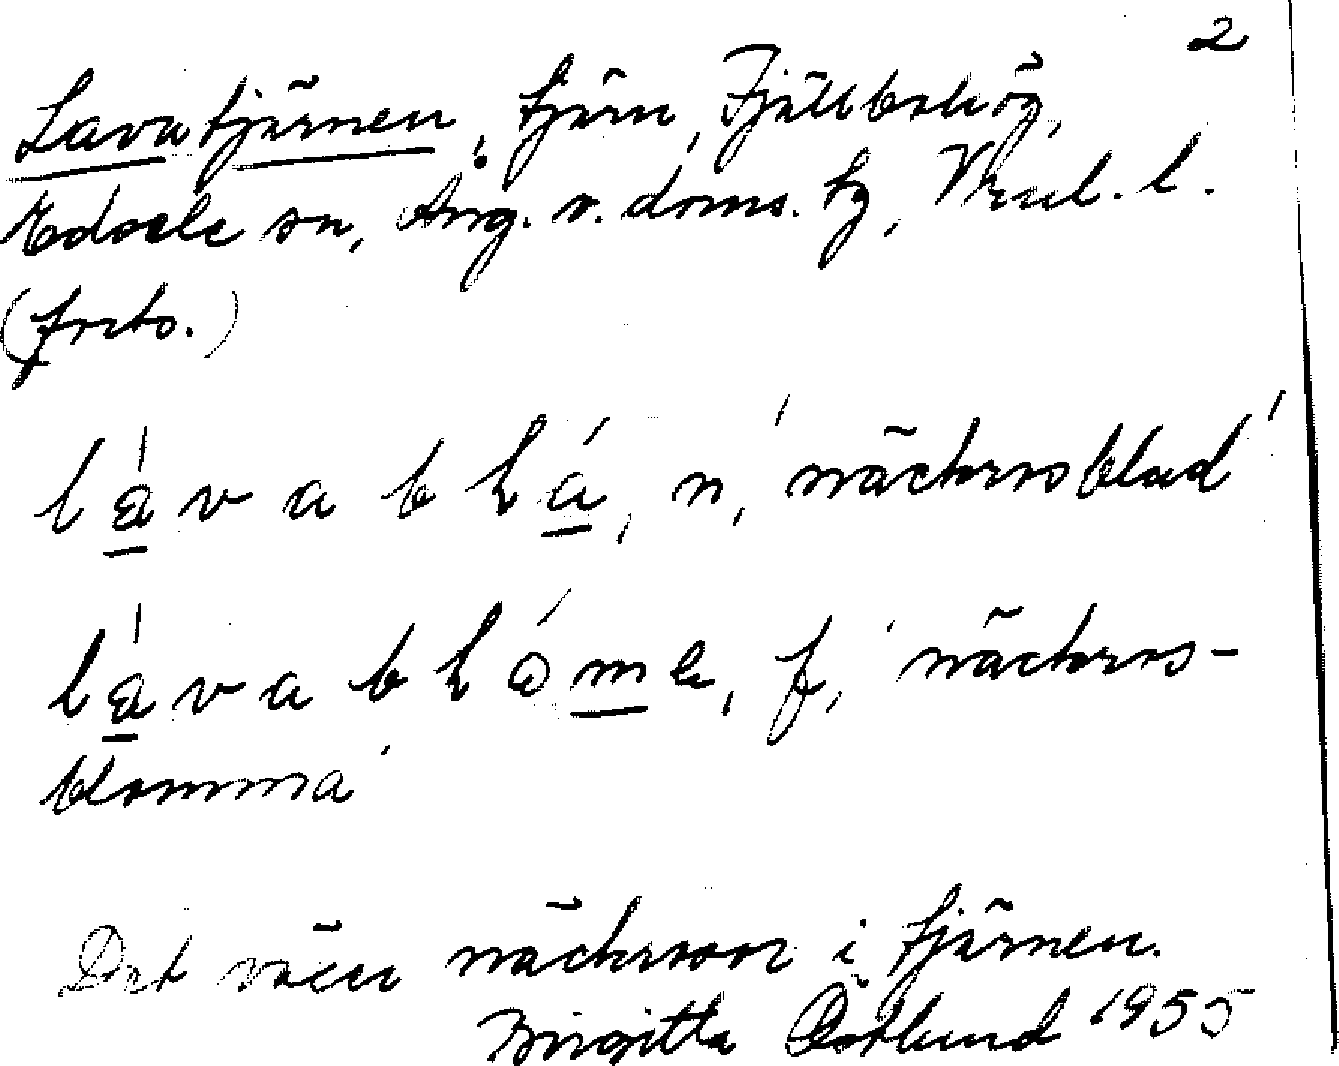 2
Lavatjärnen, tjärn, Fjällbohög,
Edsele sn, Ång. v. doms. tg, Vnl. l.
(forts.)
lávabłá, n, 'näckrosblad'
lávabłóme, f, 'näckros-
blomma'
Det växer näckrosor i tjärnen.
Birgitta Östlund 1955